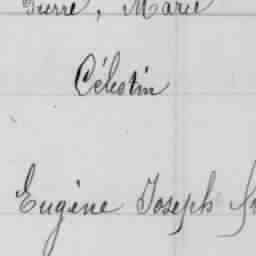 Pierre, Marie
Célestin
Eugène Joseph